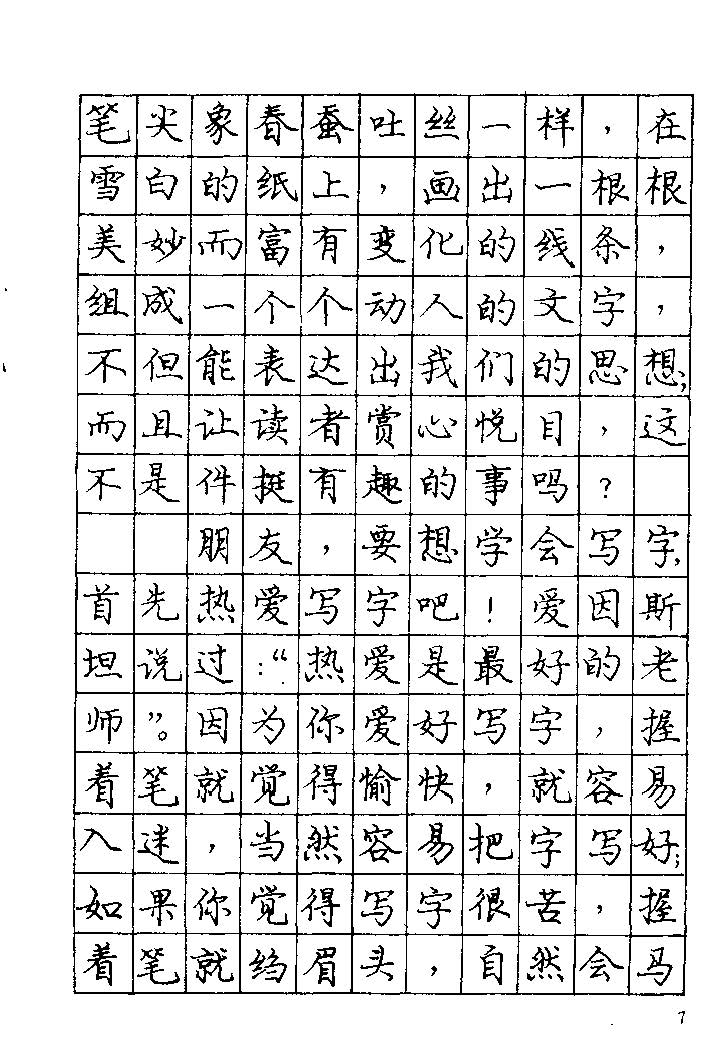 笔尖象春蚕吐丝一样，在
雪白的纸上，画出一根根
美妙而富有变化的线条，
组成一个个动人的文字，
不但能表达出我们的思想，
而且让读者赏心悦目，这
不是件挺有趣的事吗？
朋友，要想学会写字，
首先热爱写字吧！爱因斯
坦说过：“热爱是最好的老
师”。因为你爱好写字，握
着笔就觉得愉快，就容易
入迷，当然容易把字写好；
如果你觉得写字很苦，握
着笔就绉眉头，自然会马
7